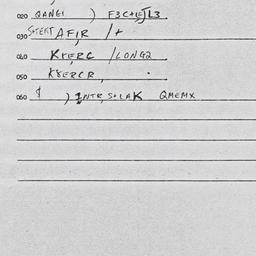 020 QANGI ) F3C+IEJL3
030 S+EKT AFIR /+
040 KYERC /LONG2
050 K8ERCR,
060 $ ) INTR, S+LAK QMEMX